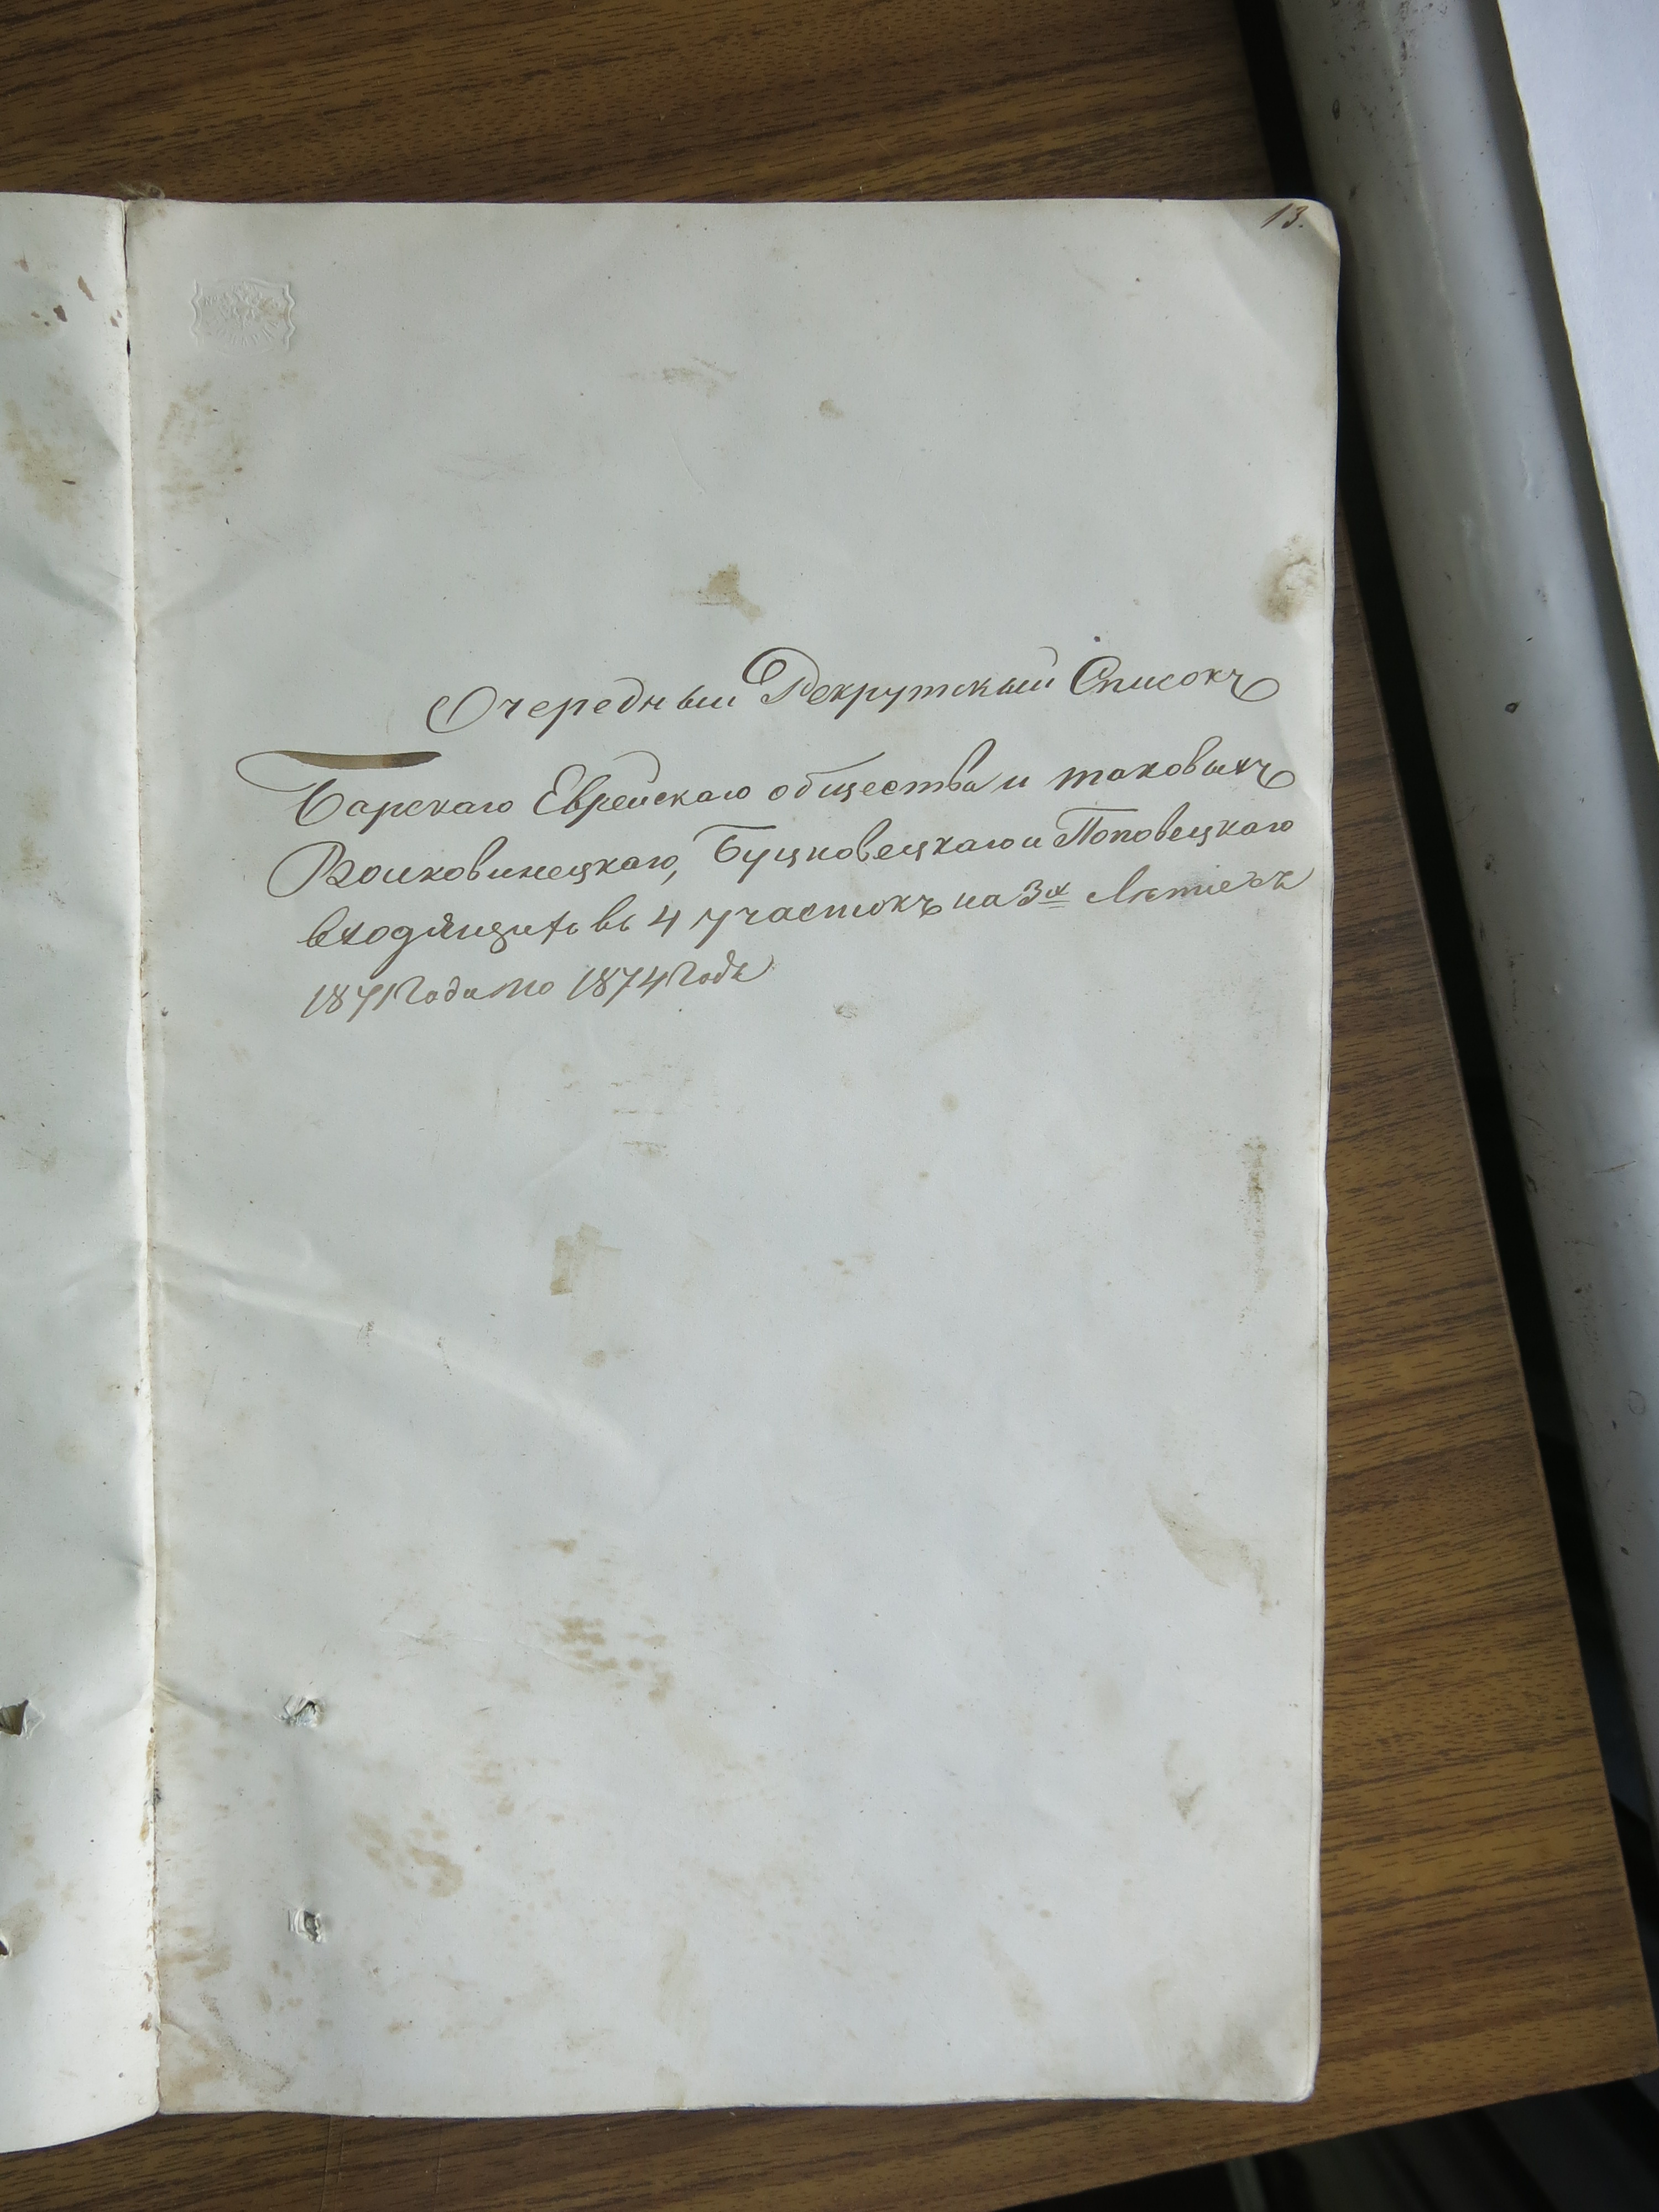 13.
Очередный Рекрутский Списокъ
Барскаго Еврейскаго общества и таковыхъ
Волковинецкаго, Буцновецкаго и Поповецкаго
входящихъ въ 4 участокъ на 3х Лѣтіе съ
1871 Года по 1874 Годъ